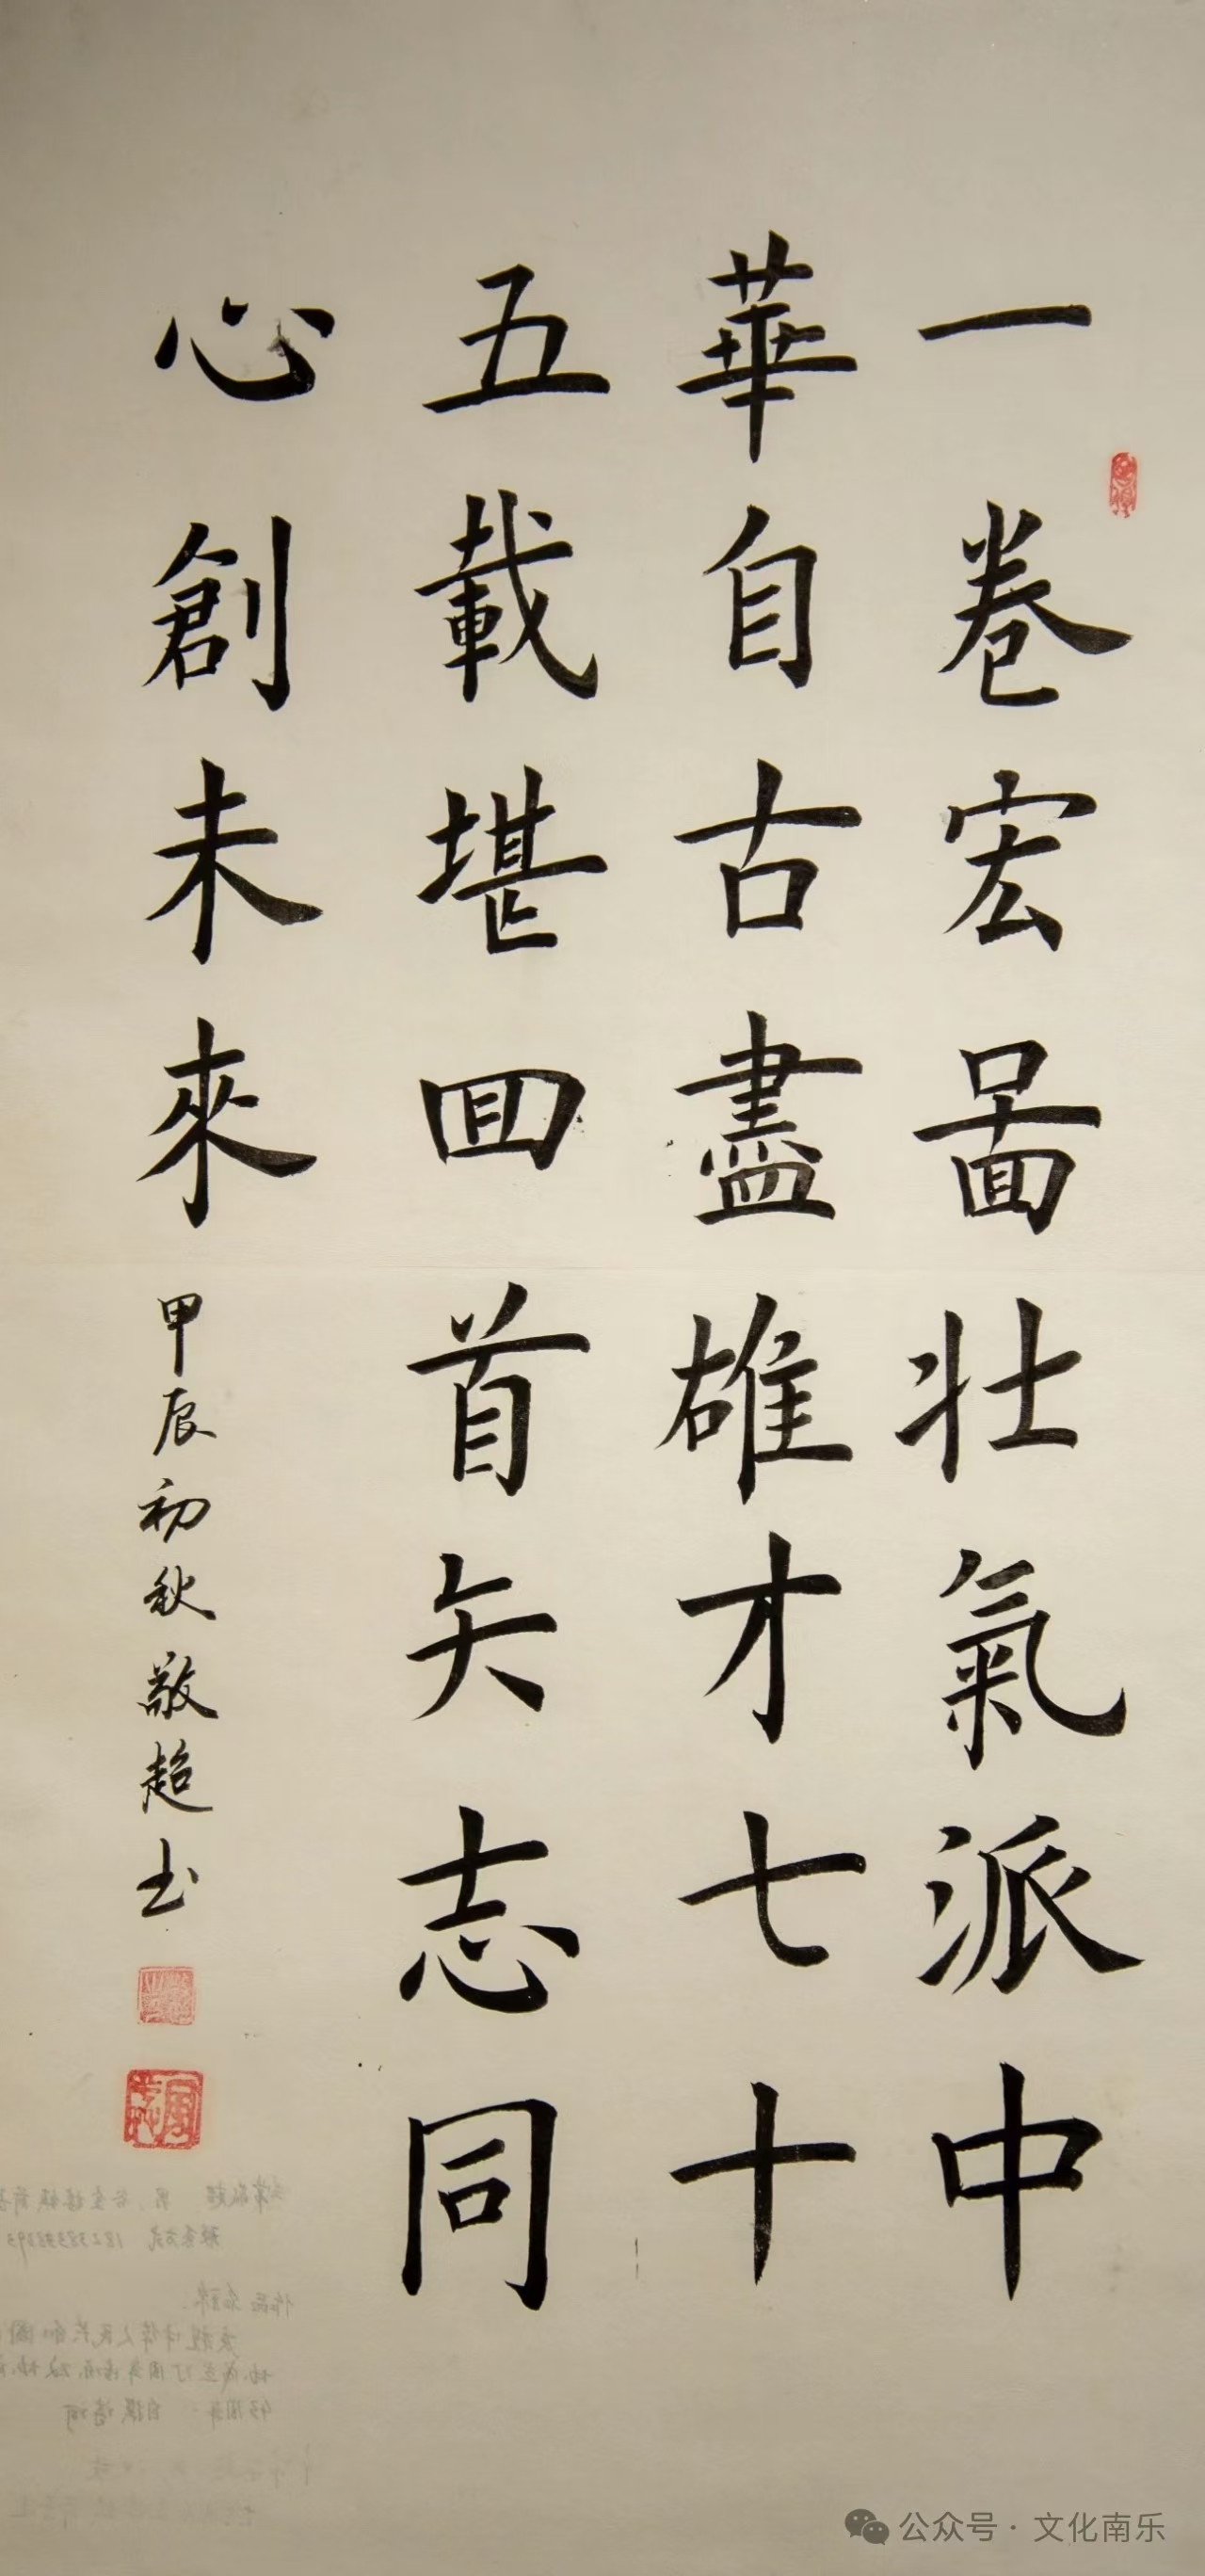 一卷宏啚壯氣派中
華自古盡雄才七十
五載堪回首矢志同
心創未來
甲辰初秋敬超书
公众号·文化南乐